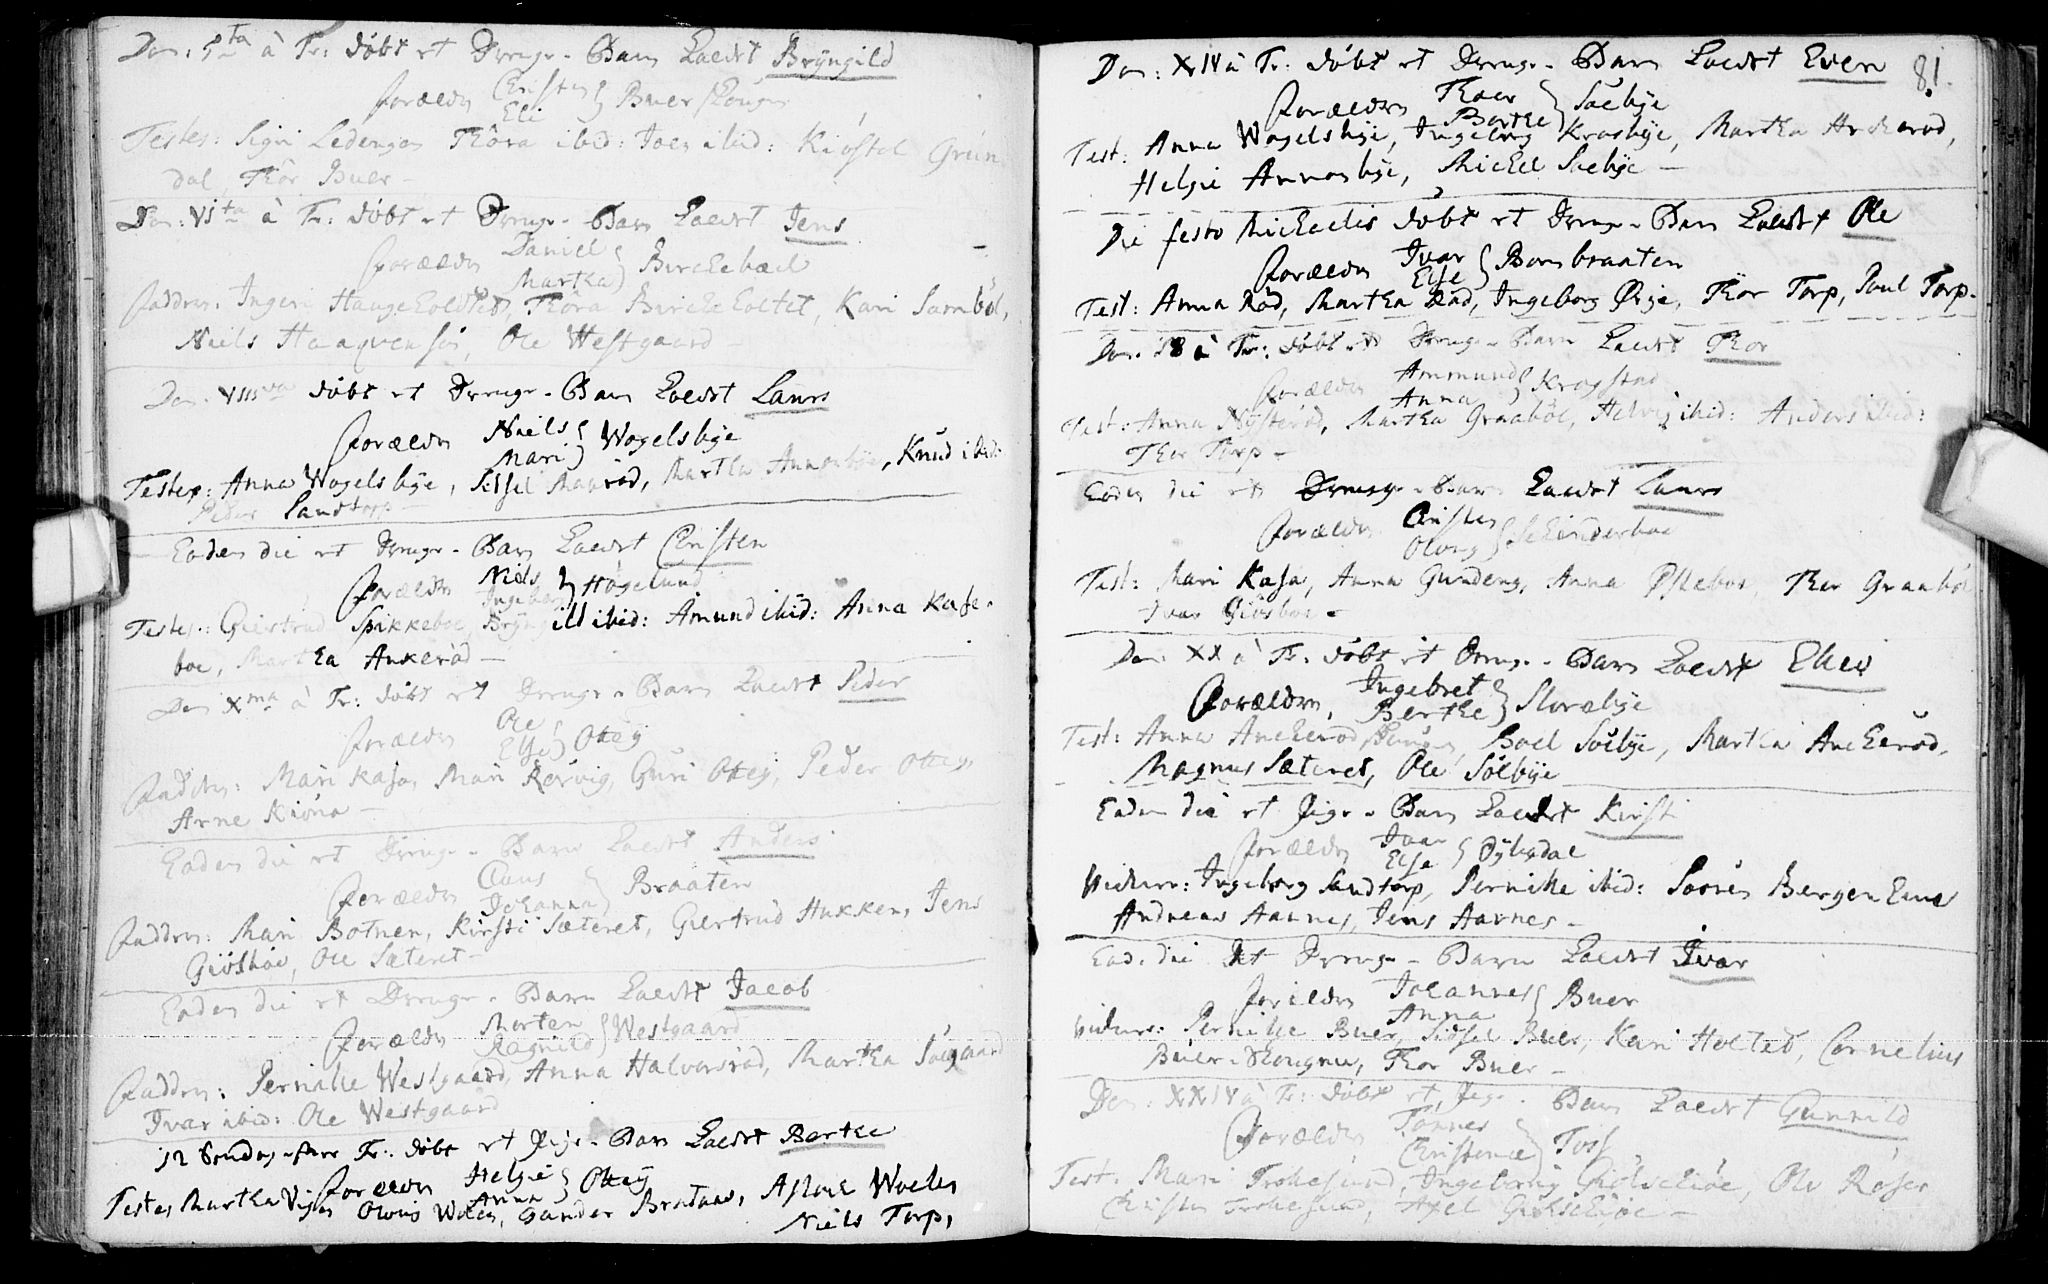 Dom: 5ta à Tr: døbt et Drenge-Barn kaldt Bryngild
Forældre Christen Eli } Buer
Testes: Sigri Ledengen Thora ibid: Joen ibid: Kiøstel Grün
dal, Thor Buer —
Dom: VIta à Tr: døbt et Drenge-Barn kaldt Jens
Forældre Daniel Martha } Birchebæch
Faddere: Ingeri Haugeholdtet, Thora Bircheholtet, Kari Sarnbøl,
Niels Haaqvensøn, Ole Westgaard —
Dom. VIIIva døbt et Drenge-Barn kaldt Laurs
Forældre Niels Mari } Wogelsbye
Testes: Anna Wogelsbye, Sidsel Maarød, Martha Annonbye, Knud ibid:
Peder Sandtorp —
Eadem die et Drenge-Barn kaldt Christen
Forældre Niels Ingebor } Høgelund
Testes: Giertrud Spikkeboe, Bryngill ibid: Amund ibid: Anna Kase-
boe, Martha Ankerød —
Dom Xma à Tr: døbt et Drenge-Barn kaldt Peder
Forældre Ole Else } Ottey
Faddere: Mari Kasa, Mari Rørvig, Guri Ottey, Peder Ottey,
Arne Kiøna —
Eadem die et Drenge-Barn kaldt Anders
Forældre Claus Johanna } Braaten
Faddere: Mari Botnen, Kirsti Sæteret, Giertrud Hukken, Jens
Giøsboe, Ole Sæteret —
Eadem die et Drenge-Barn kaldt Jacob
Forældre Morten Ragnild } Westgaard
Faddere: Pernille Westgaard, Anna Halvorsrød, Martha Søegaard
Ivar ibid: Ole Westgaard
12 Søndag efter Tr: døbt et Pige-Barn kaldt Berthe
Forældre Helgie Anna } Ottey
Testes Martha Oloug Wolen, Gunder Braten, Aslack Wolen
Niels Torp,
81.
Dom: XIV à Tr: døbt et Drenge-Barn kaldt Even
Forældre Thoer Berthe } Søebye
Test: Anna Wogelsbye, Ingeborg Krosbye, Martha Ancherød,
Helgie Annonbye, Michel Soebye —
Die festo Michaelis døbt et Drenge-Barn kaldt Ole
Forældre Ivar Else } Bombraaten
Test: Anna Rød, Martha Rød, Ingeborg Ørje, Thor Torp, Poul Torp.
Dom. 18 à Tr: døbt et Drenge-Barn kaldt Thor
Forældre Ammund Anna } Krogstad
Test: Anna Nysterød, Martha Graabøl, Helvig ibid: Anders ibid:
Thor Torp —
Eadem die et Drenge-Barn kaldt Laurs
Forældre Christen Oloug } Schinderboe
Test: Mari Kasa, Anna Gundeng, Anna Østeboe, Thor Graabøl
Ivar Giøsboe —
Dom: XX à Tr: døbt et Drenge-Barn kaldt
Forældre, Ingebret Berthe } Slorebye
Test: Anna Ancherød, Boel Søebye, Martha Ancherød,
Magnus Sæteret, Ole Sølbye
Eadem die et Pige-Barn kaldt Kirsti
Forældre Ivar Else } Dybedal
Vidner: Ingeborg Sandtorp, Pernille ibid: Søren Bergersens
Andreas Aarnes, Jens Aarnes —
Ead. die et Drenge-Barn kaldt Ivar
Forældre Johannes Anna } Buer
Vidner: Pernille Buer, Sidsel Buer, Kari Holtet, Cornelius
Buer-Skougen, Thor Buer —
Dom: XXIV à Tr: døbt et Pige-Barn kaldt Gunnild
Forældre Tønnes Christence } Toss
Test: Mari Trohesund, Ingeborg Gielschiøe, Ole Røser
Christen Trohesund, Axel Gielschiøe —